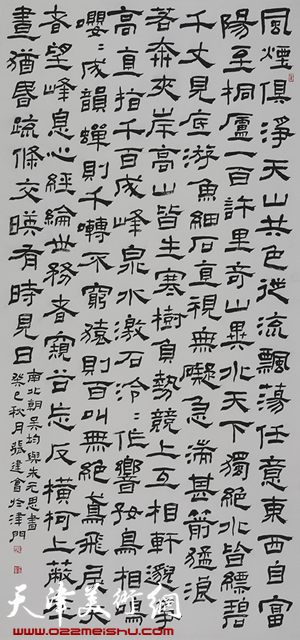 風煙俱淨天山共色從流飄蕩任意東西自富
陽至桐廬一百許里奇山異水天下獨絕水皆縹碧
千丈見底游魚細石直視無礙急湍甚箭猛浪
若奔夾岸高山皆生寒樹負勢競上互相軒邈爭
高直指千百成峰泉水激石泠泠作響好鳥相鳴
嚶嚶成韻蟬則千囀不窮猿則百叫無絕鳶飛戾天
者望峰息心經綸世務者窺谷忘反橫柯上蔽在
晝猶昏疏條交暎有時見日
南北朝吳均與朱元思書
癸巳秋月張建會於津門
天津美術網
www.022meishu.com